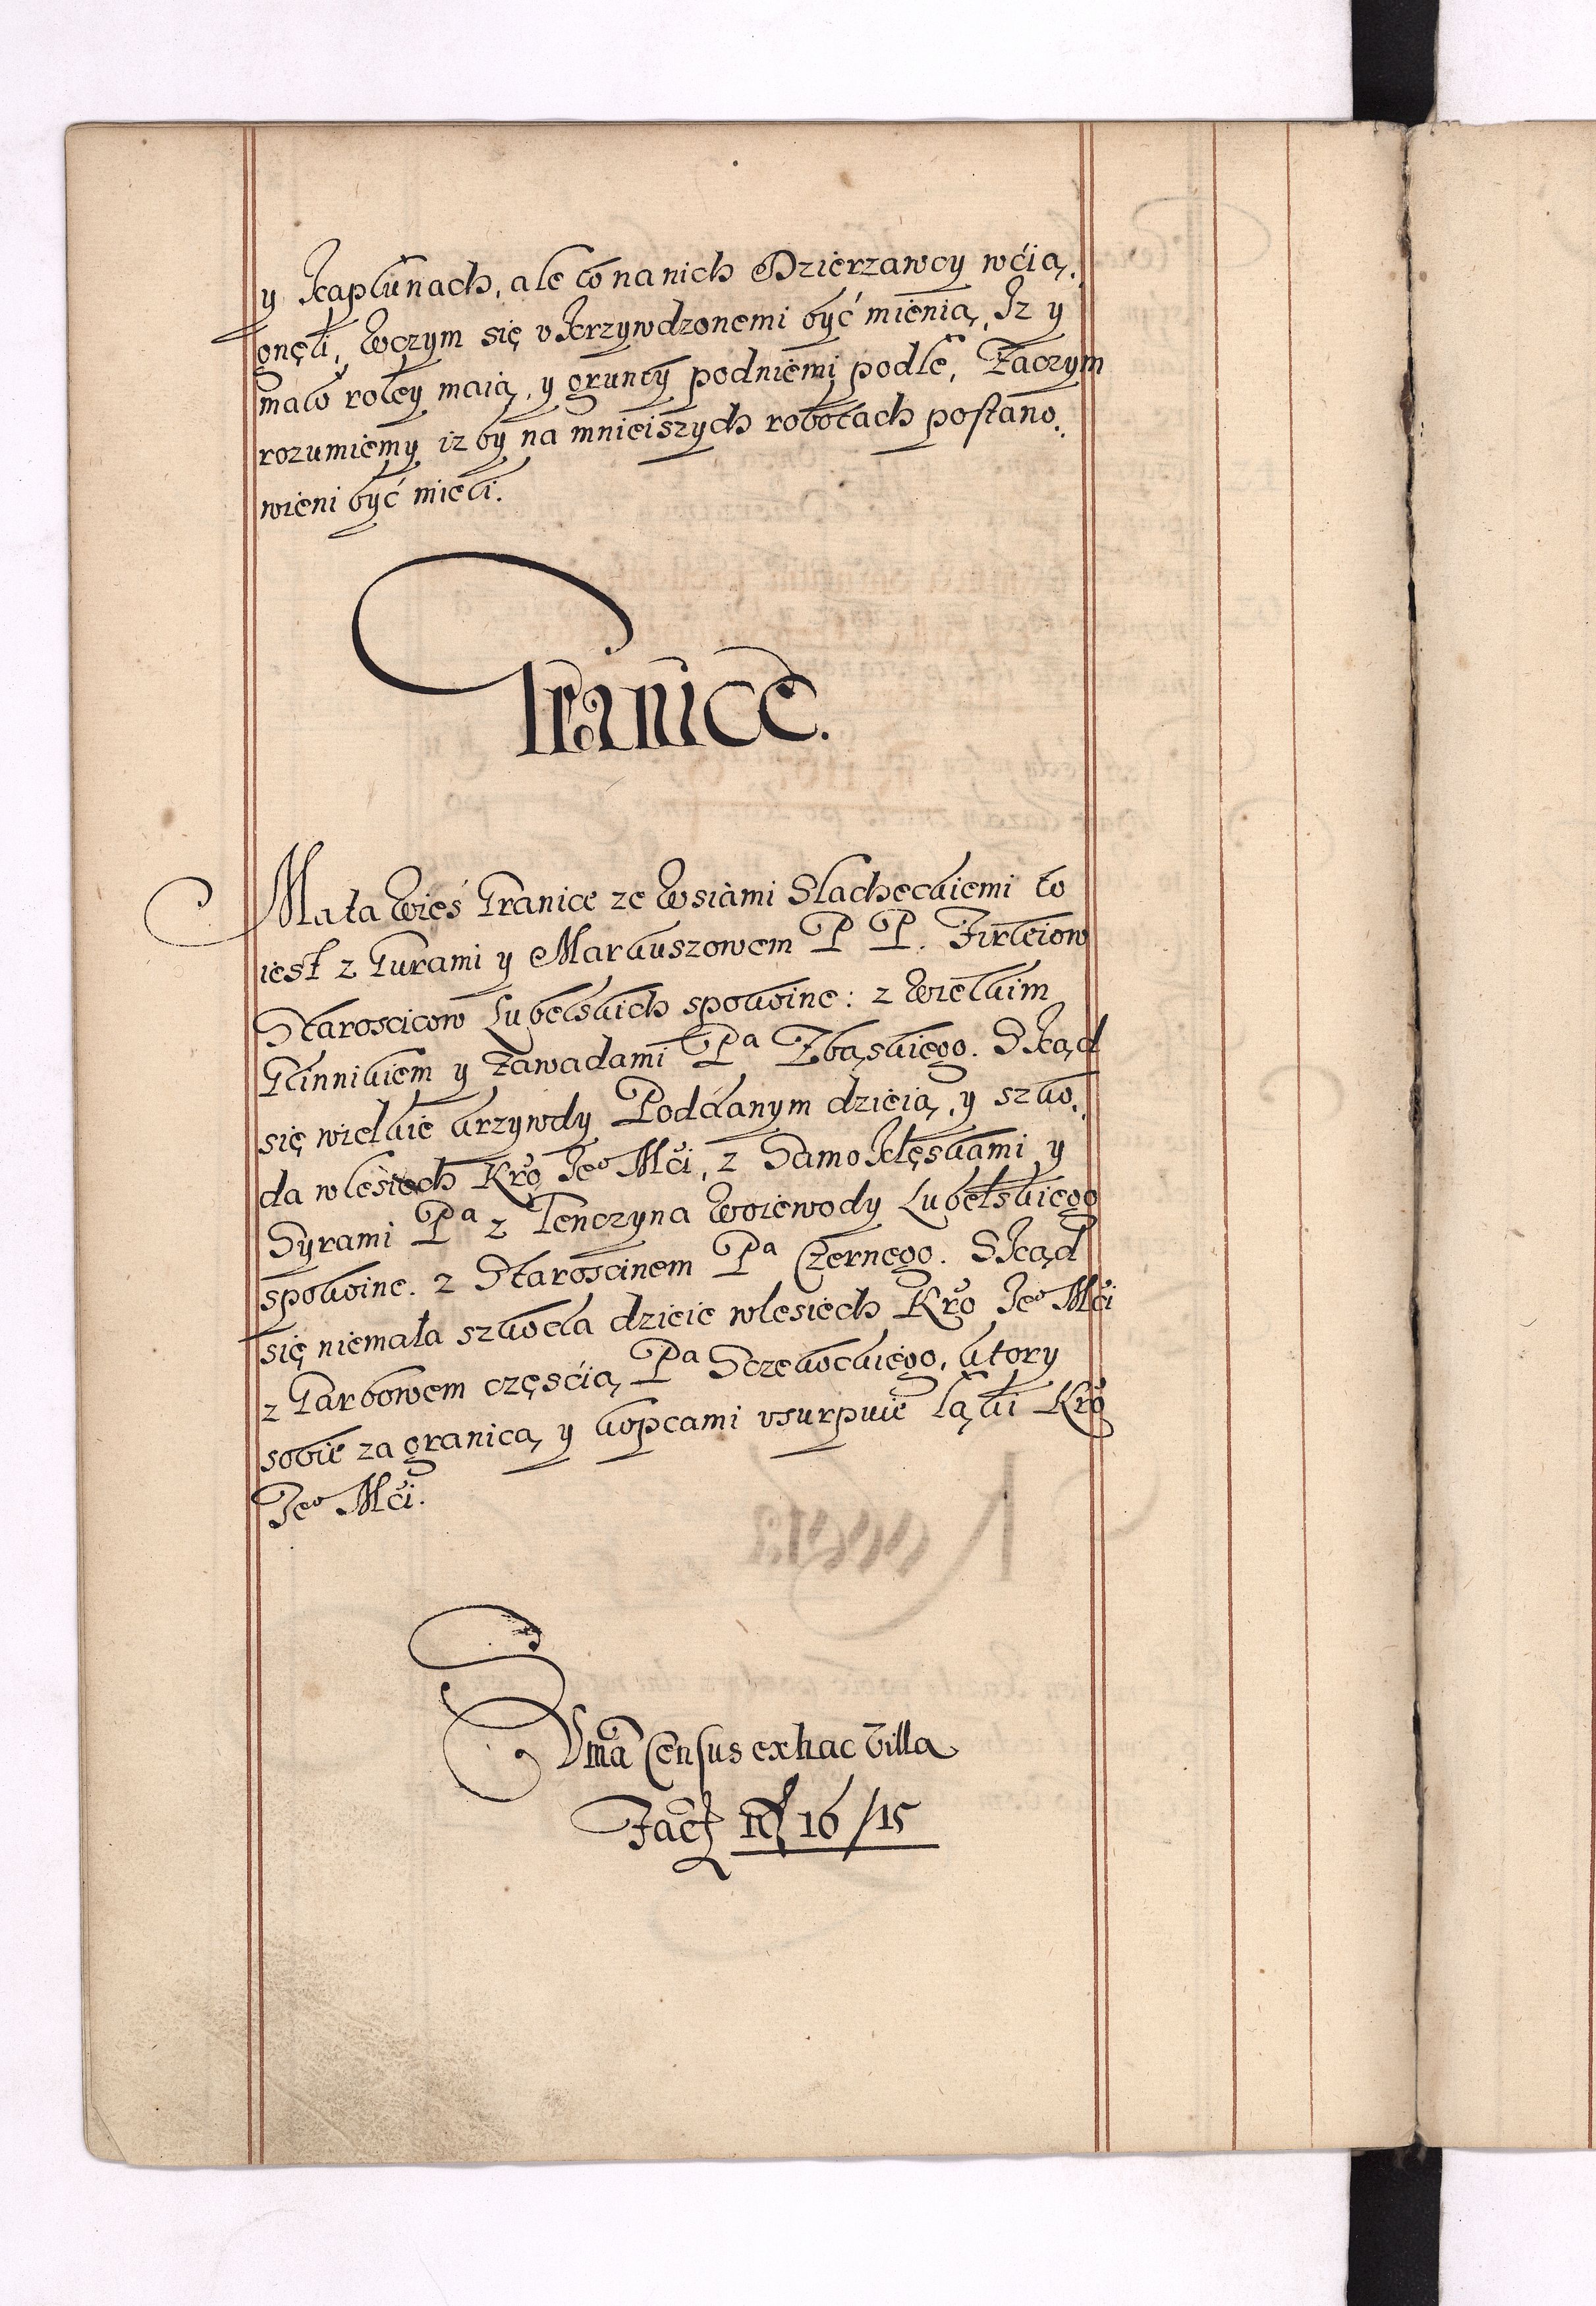 y Kapłunach, ale to na nich Dzierzawcy wćią,
gnęli, w czym się vkrzywdzonemi być mienią, Iz y
mało roley maią, y grunty pod niemi podłe, Zaczym
rozumiemy iz by na mnieiszych robotach postano,
wieni być mieli.
Granice.
Mata Wieś Granice ze Wsiami Slacheckiemi to
iest z Gurami y Markuszowem P P. Firleiow
Staroscicow Lubelskich spokoine: z Wielkim
Klinnikiem y Zawadami Pa Zbąskiego. Skąd
się wielkie krzywdy Poddanym dzieią, y szko,
da w lesiech Kro Jeo Mći, z Samoklęskami y
Syrami Pa z Tenczyna Woiewody Lubelskiego
spokoine. z Staroscinem Pa Czernego. Skąd
się niemała szkoda dzieie w lesiech Kro Jeo Mći
z Garbowem częścią Pa Sczekockiego, ktory
sobie za granicą y kopcami vsurpuie łąki Kro
Jeo Mći.
Suma Census ex hac Villa
Facit fl 16/15